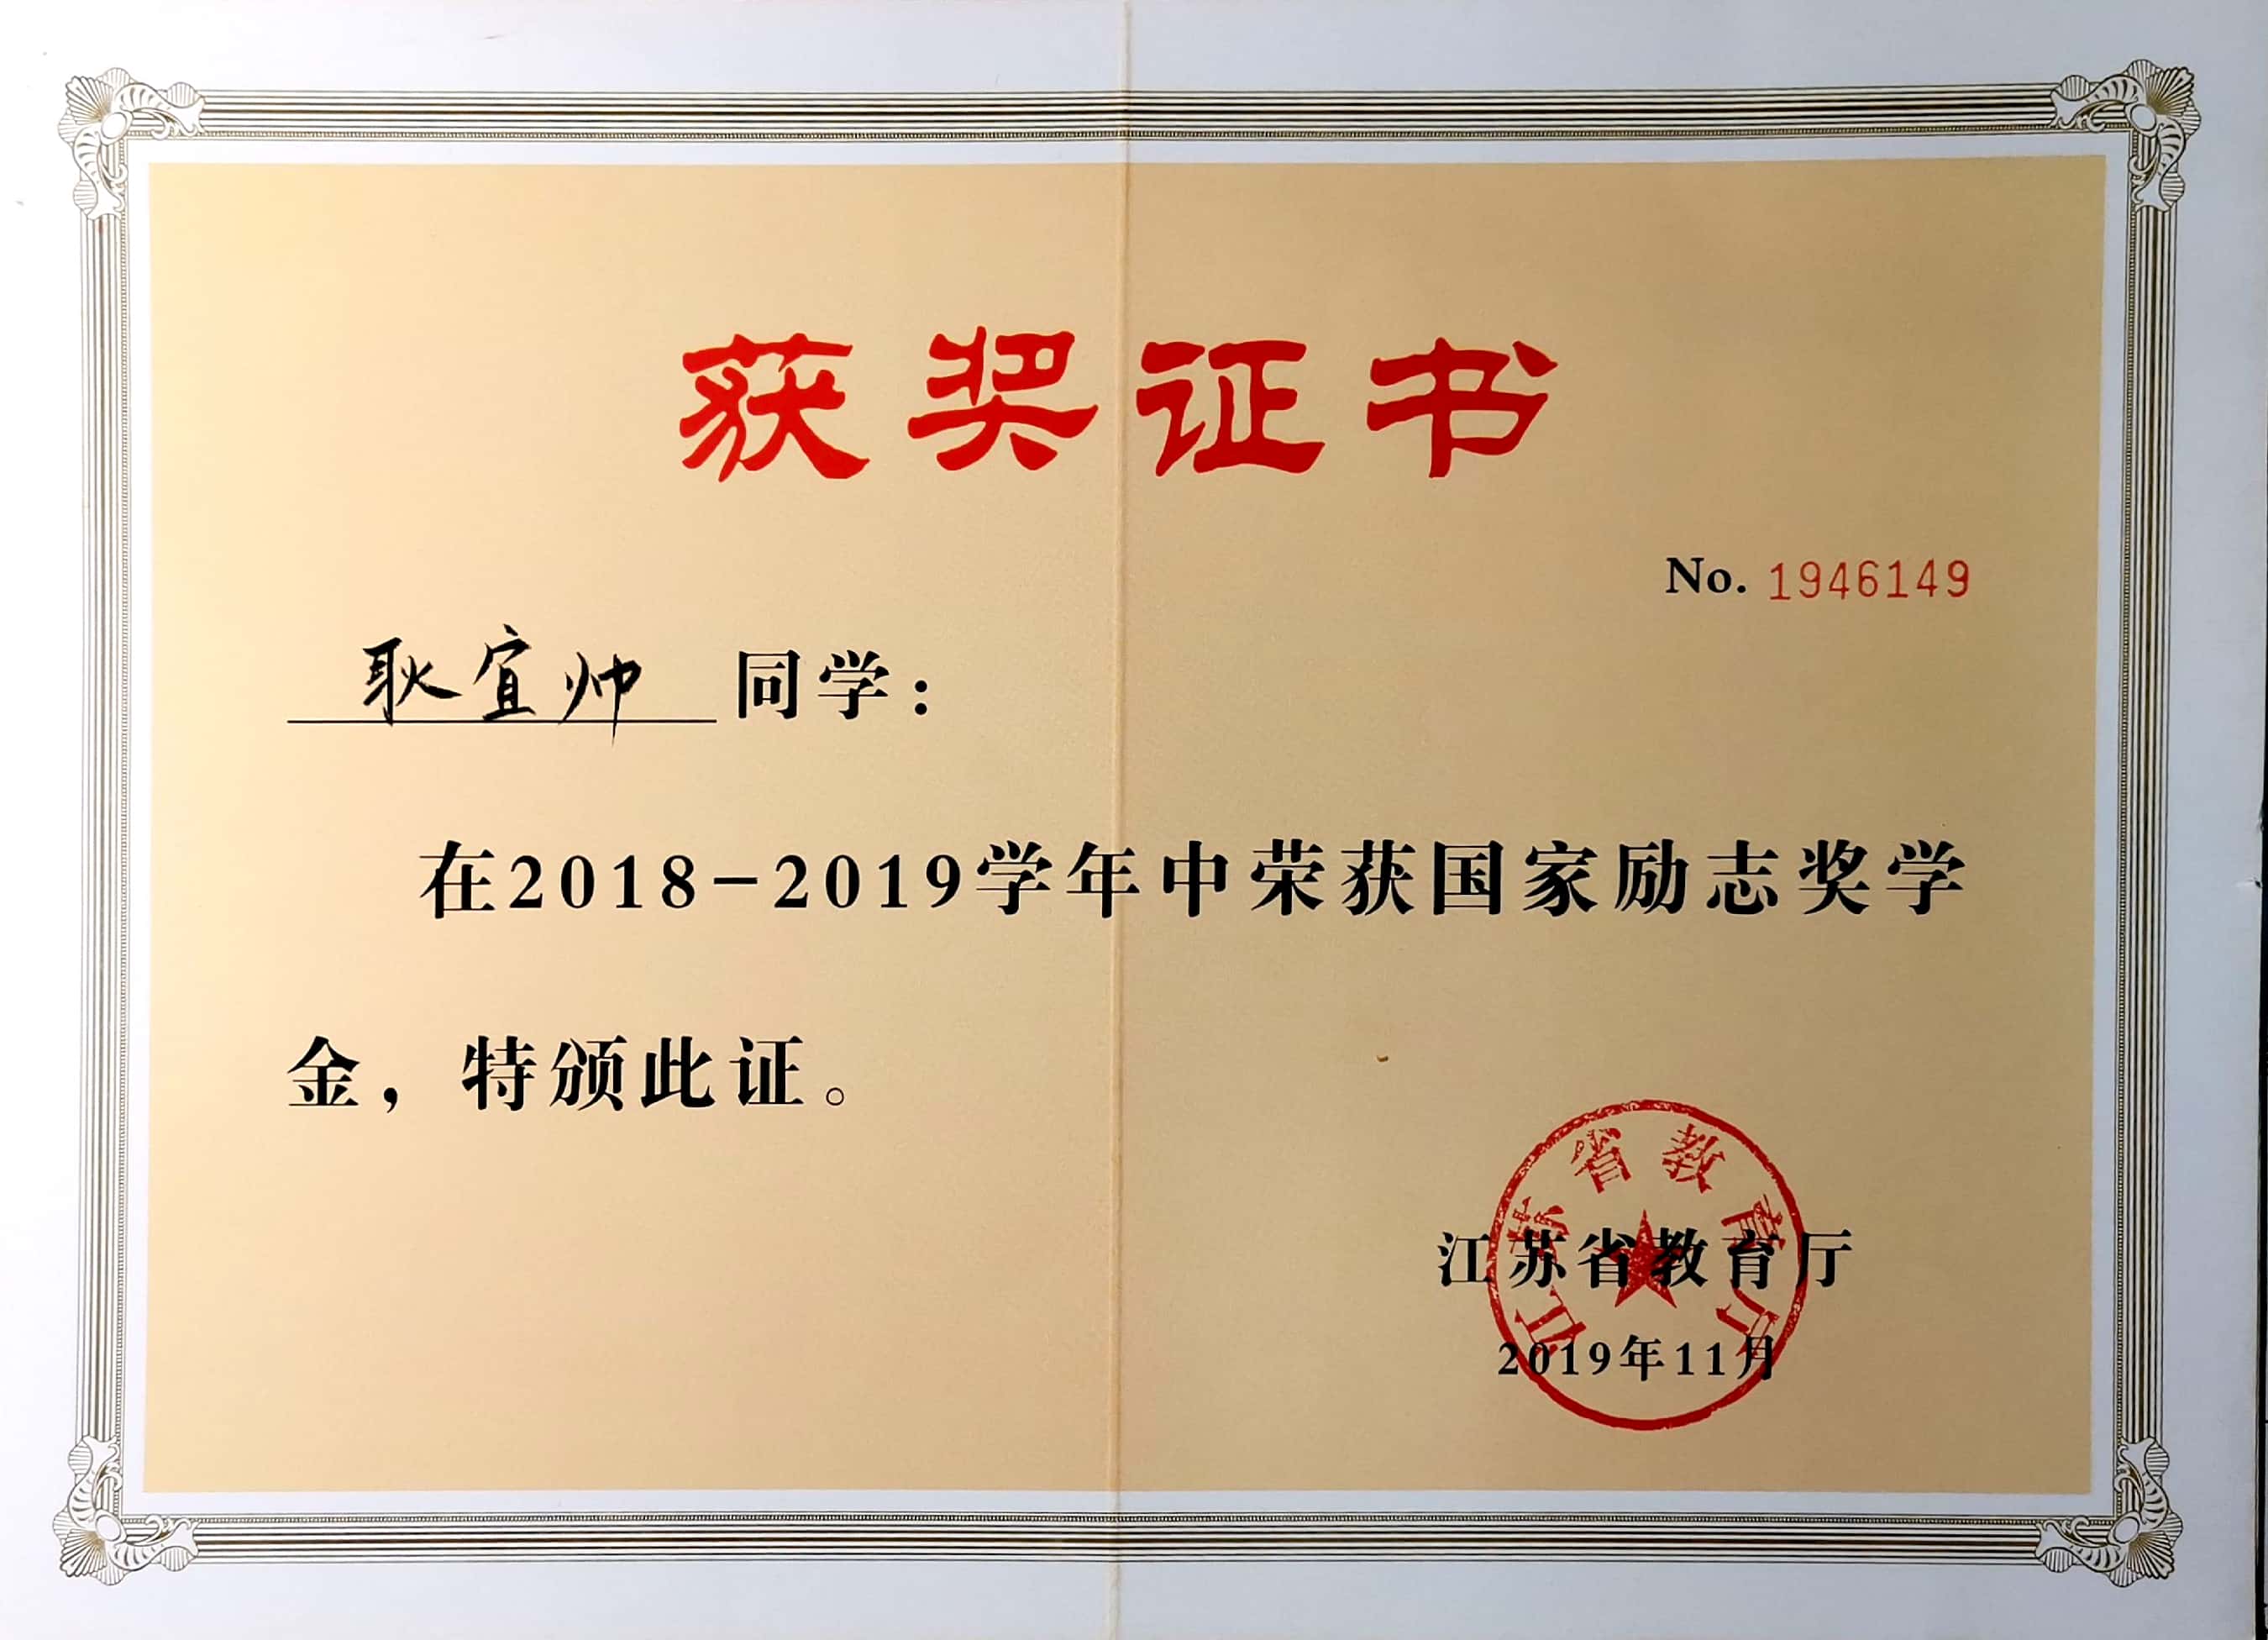 获奖证书
No. 1946149
耿宜帅 同学：
在2018-2019学年中荣获国家励志奖学
金，特颁此证。
江苏省教育厅
江苏省教育厅
2019年11月